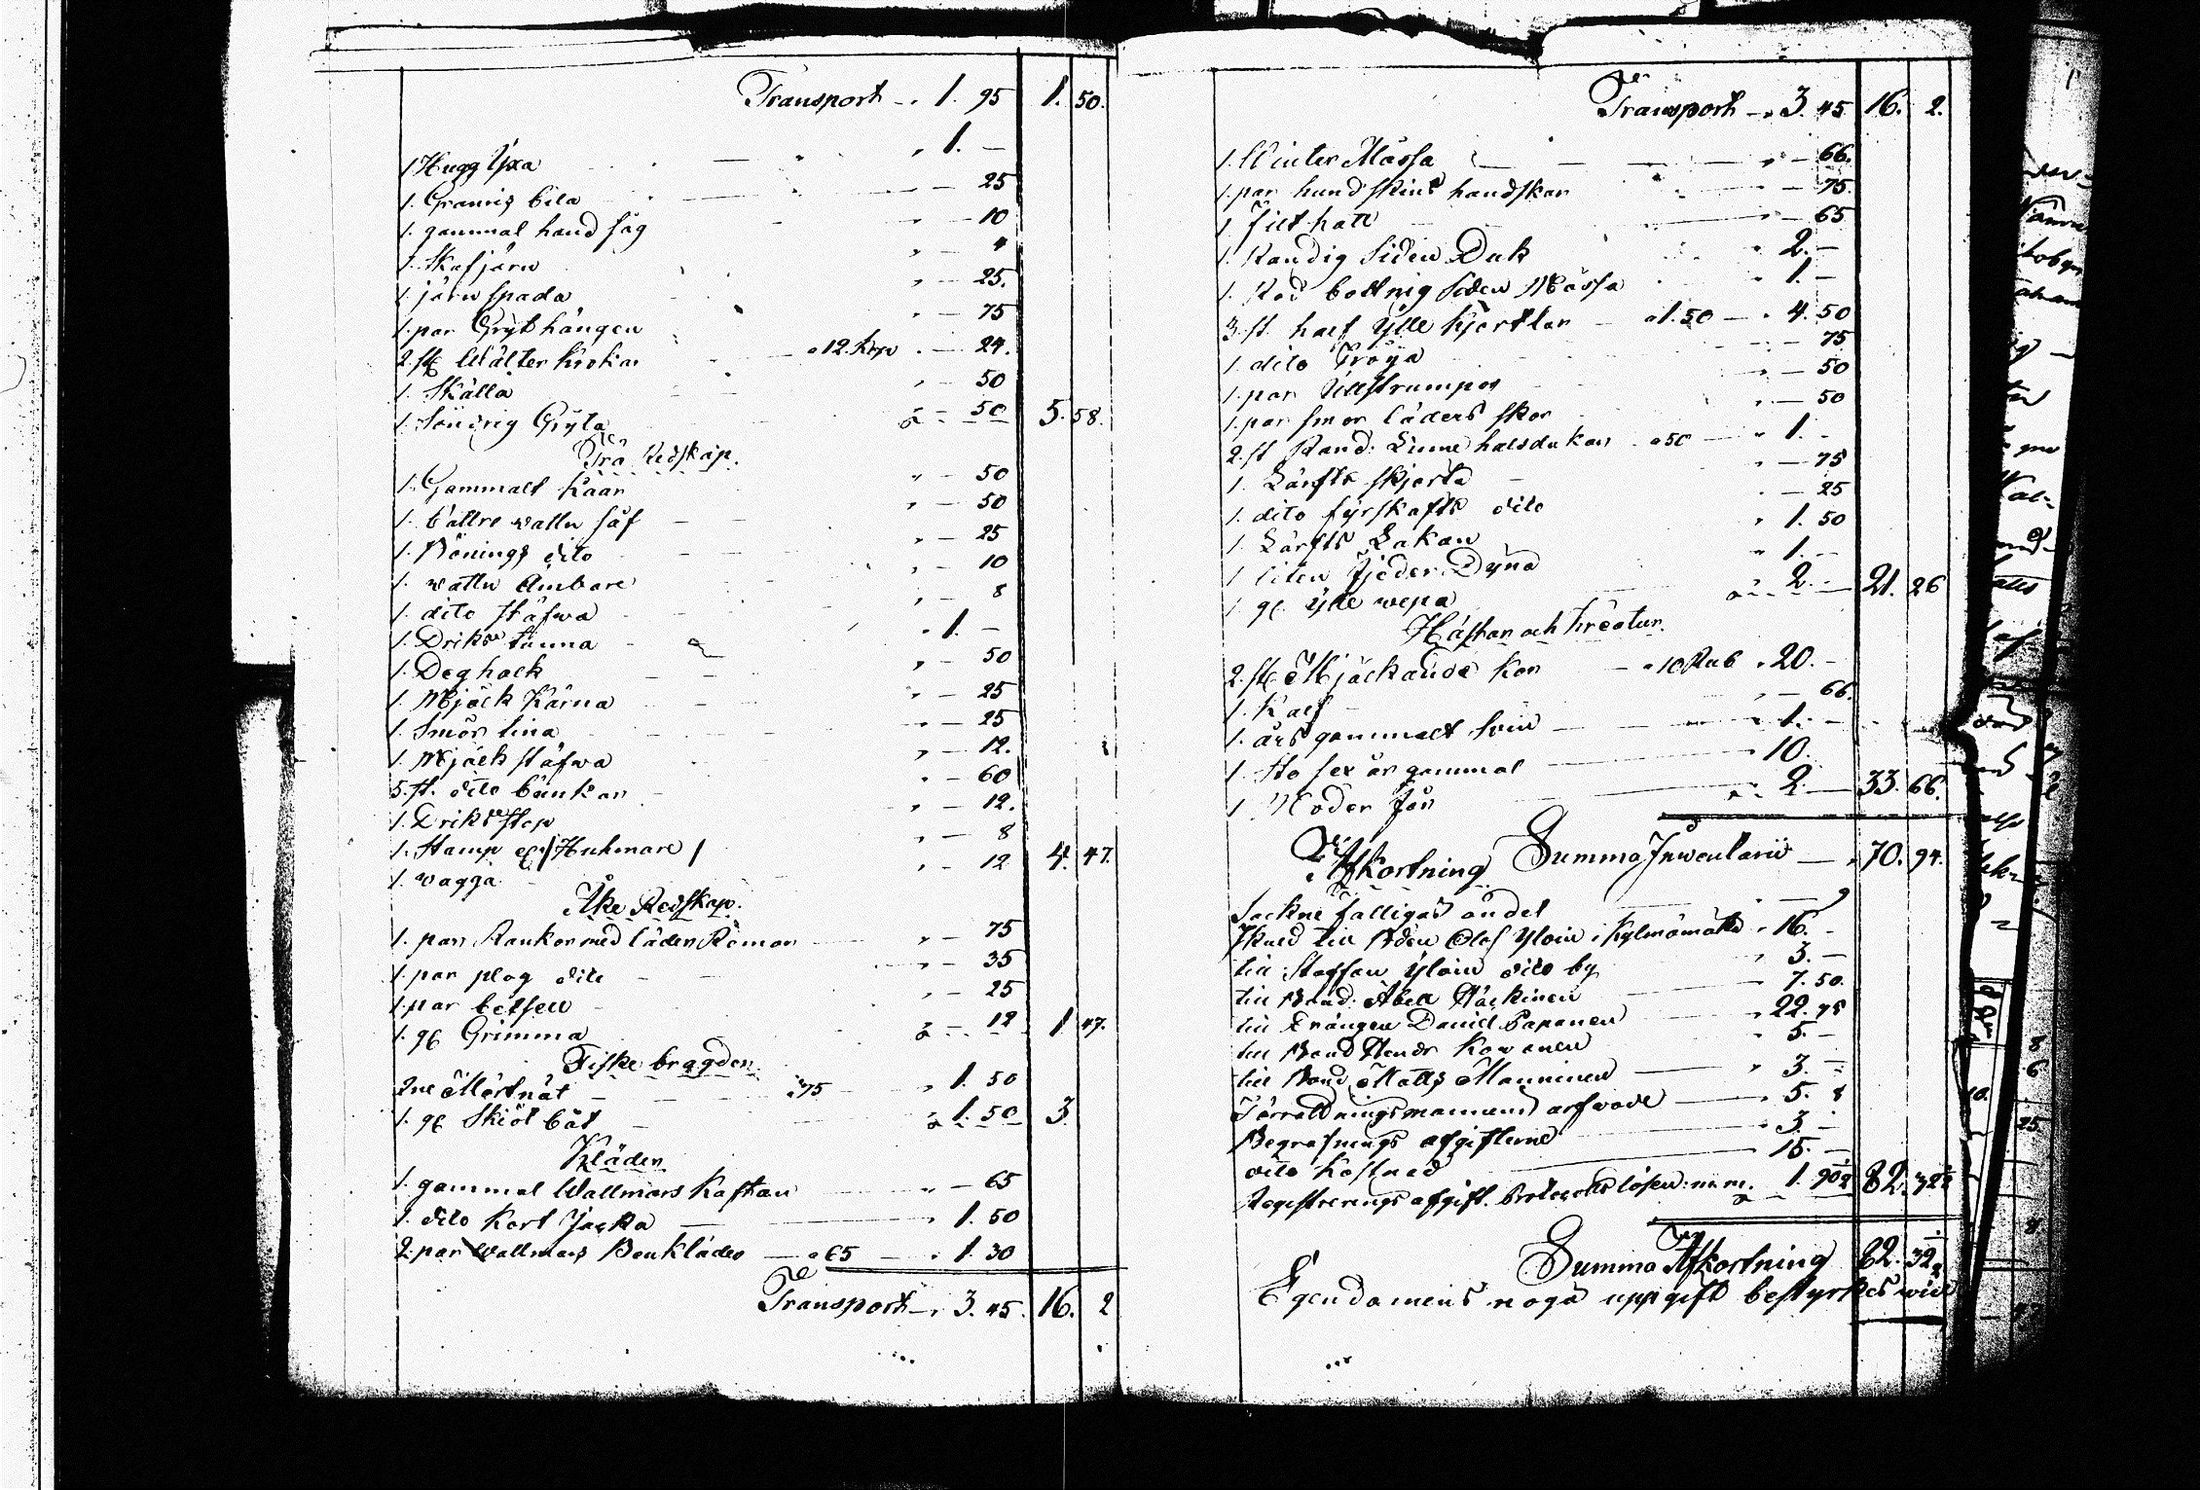 Transport - 1. 95 1. 50.
1 Hugg Yxa 1. -
1. Gramig bila 25
1. gammal hand såg 10
1. Skafjärn 4
1. järn spada 25.
1. par Grythängen 75
2. st Wälter krokar a 12. kop 24.
1. Skålla 50
1. Söndrig Gryta 50 5. 58.
Trä Redskap.
1. Gammalt Kaar 50
1. bättre vattn såf 50
1. Bönings dito 25
1. vattn Ämbare 10
1. dito stäfwa 8
1. Driks tunna 1. -
1. Deg hoek 50
1. Mjölk Kärna 25
1. Smör tina 25
1. Mjölk stäfwa 12.
5. st. dito bunkar 60
1. Driks stop 12.
1. Stamp /Huhmare/ 8
1. vagga 12 4. 47.
Åke Redskap.
1. par Rankor med läder Remar 75
1. par plog dito 35
1. par betsell 25
1. gl Grimma 12 1 47.
Fiske bragder
2ne Mörtnät a 75 1. 50
1. gl Skiöt båt 1. 50 3.
Kläder
1. gammal Wallmars Kaftan 65
1. dito kort Jacka 1. 50
2. par Wallmars Benkläder a 65 1. 30
Transport - 3. 45. 16. 2
Transport - 3. 45 16. 2.
1. Winter Mössa 66.
1. par hundskins handskar 75.
1 Filt hatt 65
1. Randig Siden Duk 2. -
1. Röd bottnig Siden Mössa 1. -
3. st half Ylle kjortlar a 1. 50 4. 50
1. dito Tröya 75
1. par Ullstrumpor 50
1. par smor läders skor 50
2. st Rand. Linne halsdukar a 50 1. -
1. Lärfts skjorta 75
1. dito fyrskafts dito 25
1. Lärfts Lakan 1. 50
1 liten Fjeder Dyna 1. -
1. gl. ylle wepa 2. - 21. 26
Hästar och Kreatur.
2. st Mjölkande kor a 10 Rub 20. -
1. Kalf 66.
1. års gammalt svin 1. -
1. Sto sex år gammal 10.
1. Moder får 2. 33. 66.
Summa Inventarii 70. 94.
Afkortning
Sockne fattigas andel
Skuld till Bden Olof Yloin i Kylmämäki 16. -
till Staffan Yloin dito by 3. -
till Bond. Abell Häckinen 7. 50.
till Drängen David Paponen 22. 75
till Bond Hendr Kowanen 5. -
till Bond. Matts Manninen 3. -
Förrättningsmannens arfvode 5. 8
Begrafnings afgifterne 3. -
dito kostnad 15. -
Registrerings afgift. Protocolls lösen m. m. 1. 90½ 82. 32½
Summa Afkortning 82. 32½
Egendomens noga uppgift bestyrkes wid